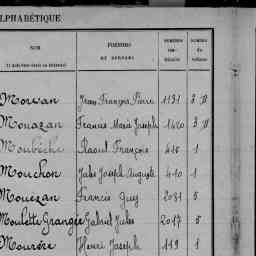 ALPHABÉTIQUE
NOM
PRÉNOMS
NUMÉROS
NUMÉROS
du
volume
Morvan Jean François Pierre 1131 3
Mouazan Francis Marie Joseph 1420 3
Moubèche Raoul François 415 1
Mouchon Jules Joseph Auguste 410 1
Mouezan Francis Guy 2031 5
Moulette Grangée Gabriel Jules 2017 5
Mourère Henri Joseph 119 1